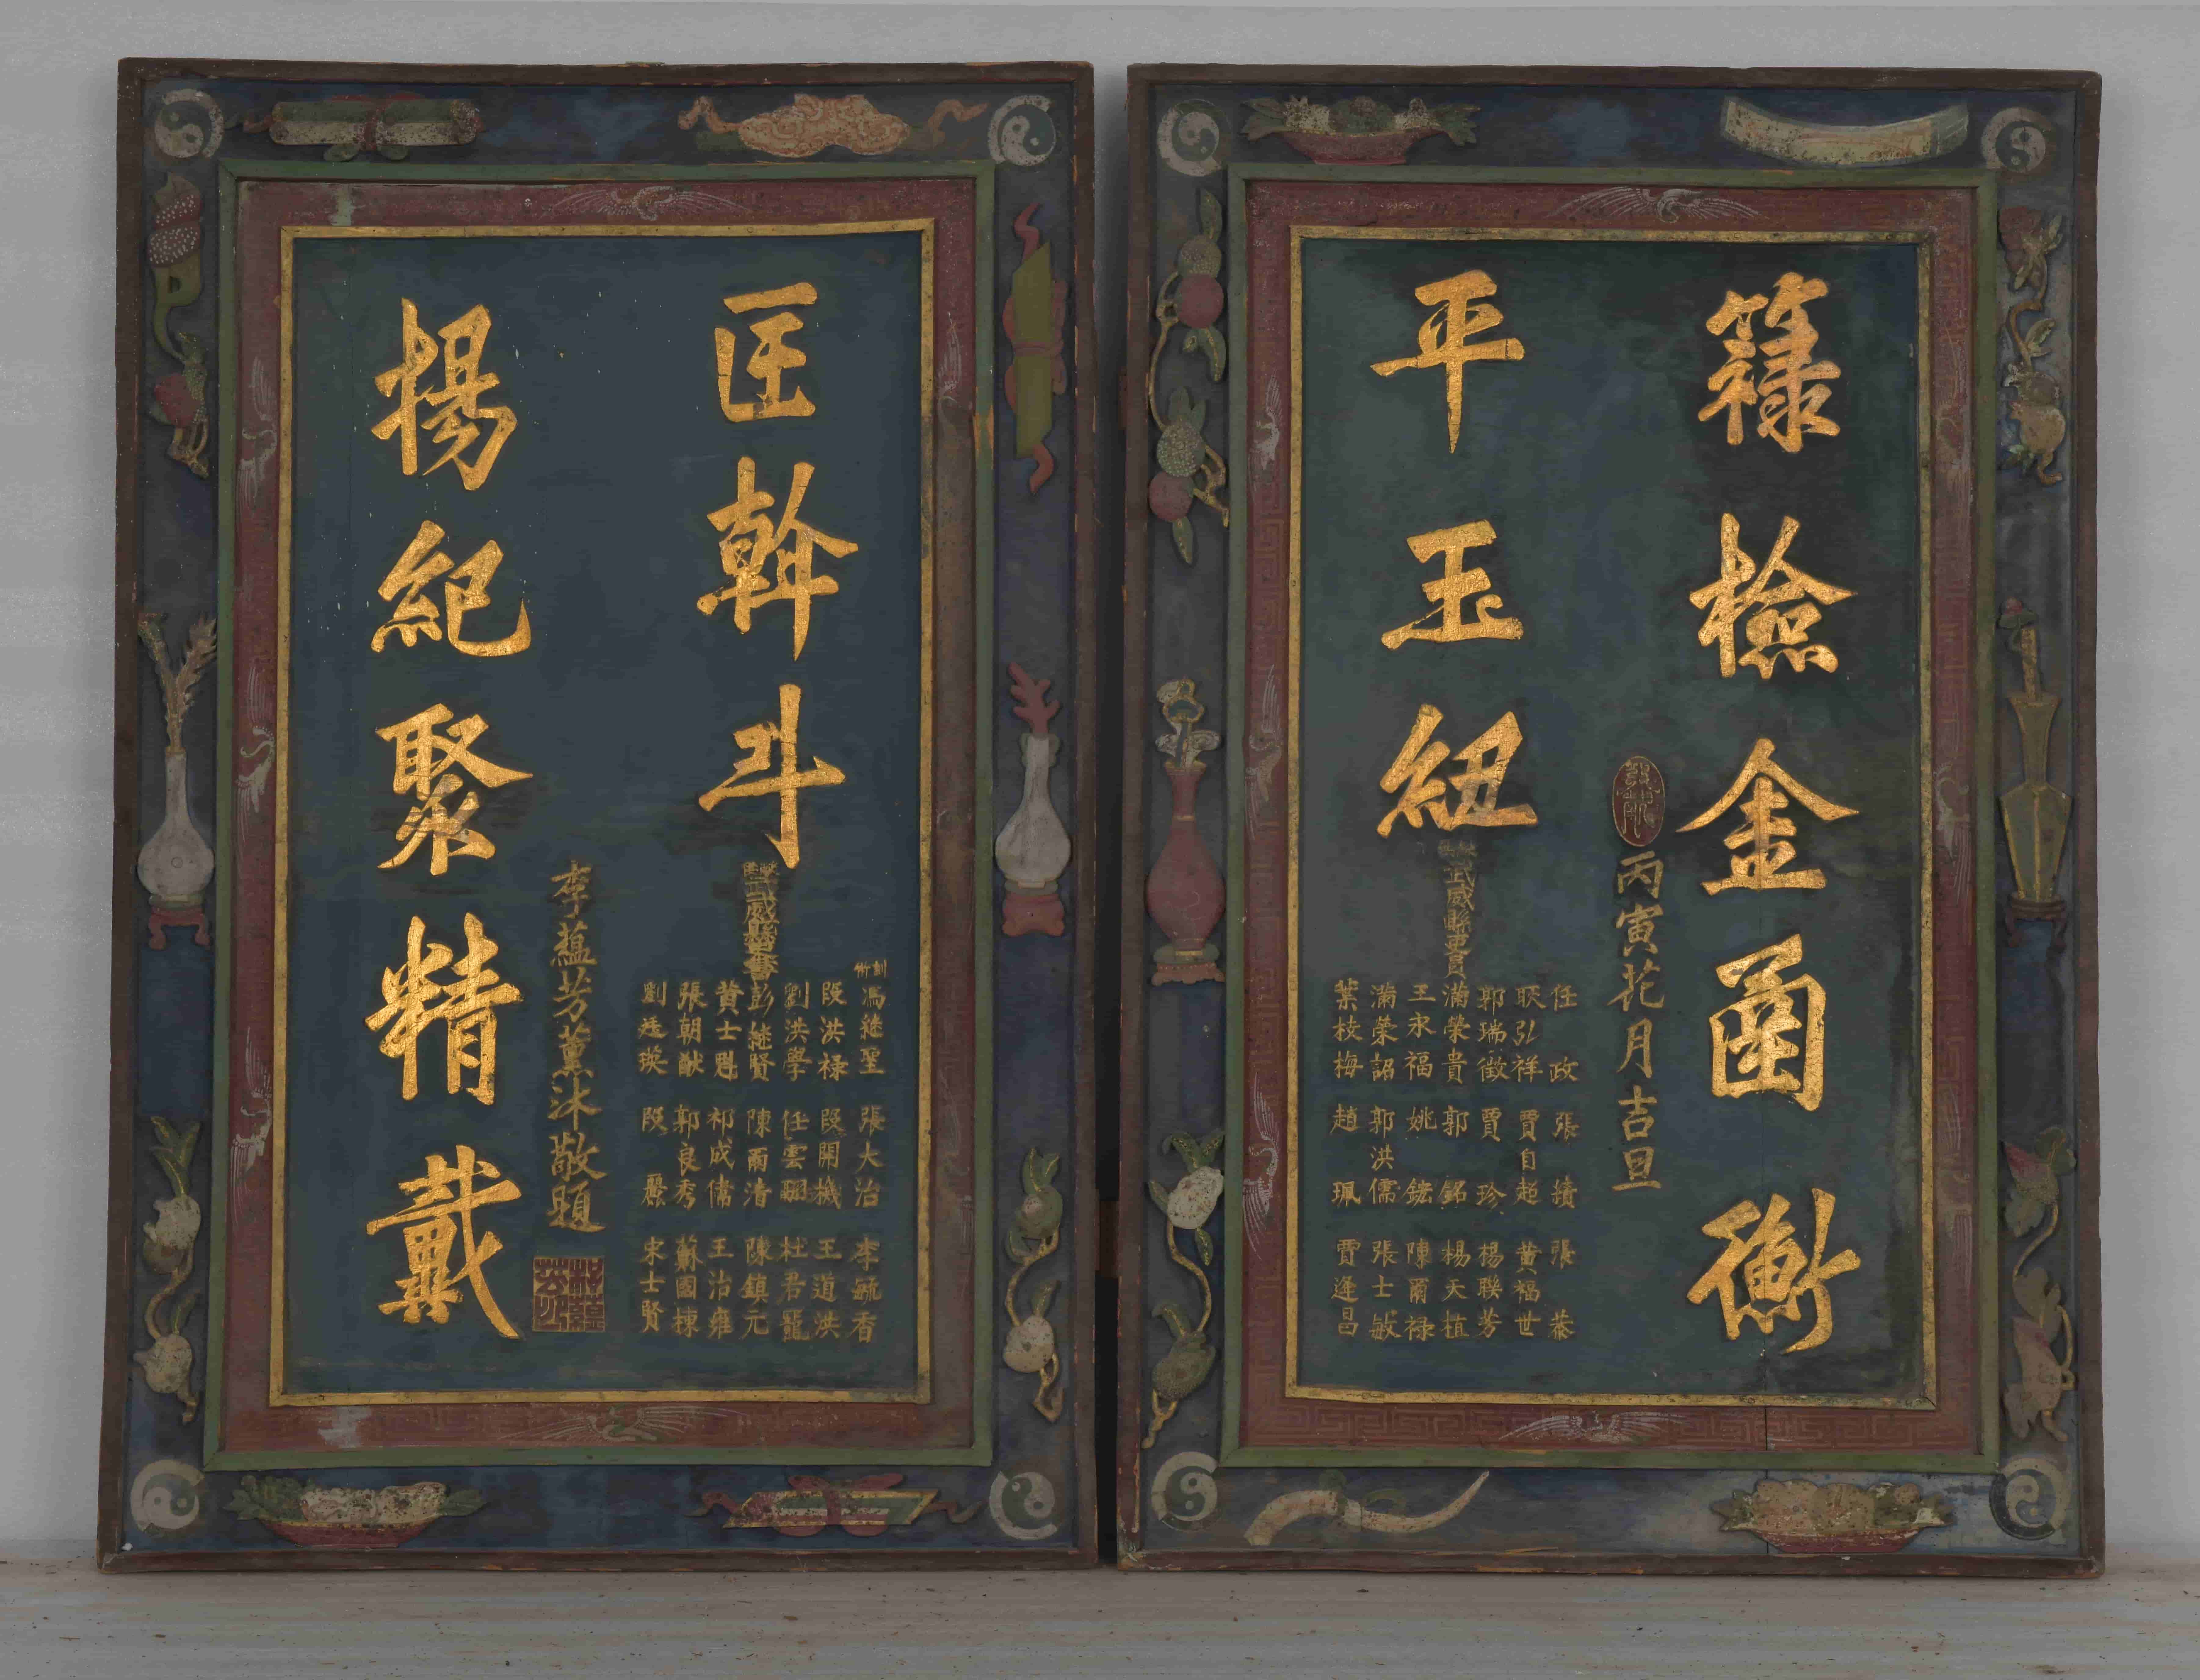 籙檢金函衡
丙寅花月吉旦
平玉紐
武威縣吏員
任政 張績 張恭
耿弘祥 賈自超 黃福世
郭瑞徵 賈珍 楊聯芳
滿榮貴 郭銘 楊天植
王永福 姚鋐 陳爾祿
滿榮詔 郭洪儒 張士敏
葉枝梅 趙珮 賈逢昌
匡斡斗
馮繼聖 張大治 李毓香
段洪祿 段開機 王道洪
劉洪學 任雲翮 杜君寵
彭繼賢 陳爾清 陳鎮元
黃士魁 祁成儒 王治雍
張朝猷 郭良秀 蘇國棟
劉廷瑛 段 宋士賢
李蘊芳薰沐敬題
揚紀聚精戴